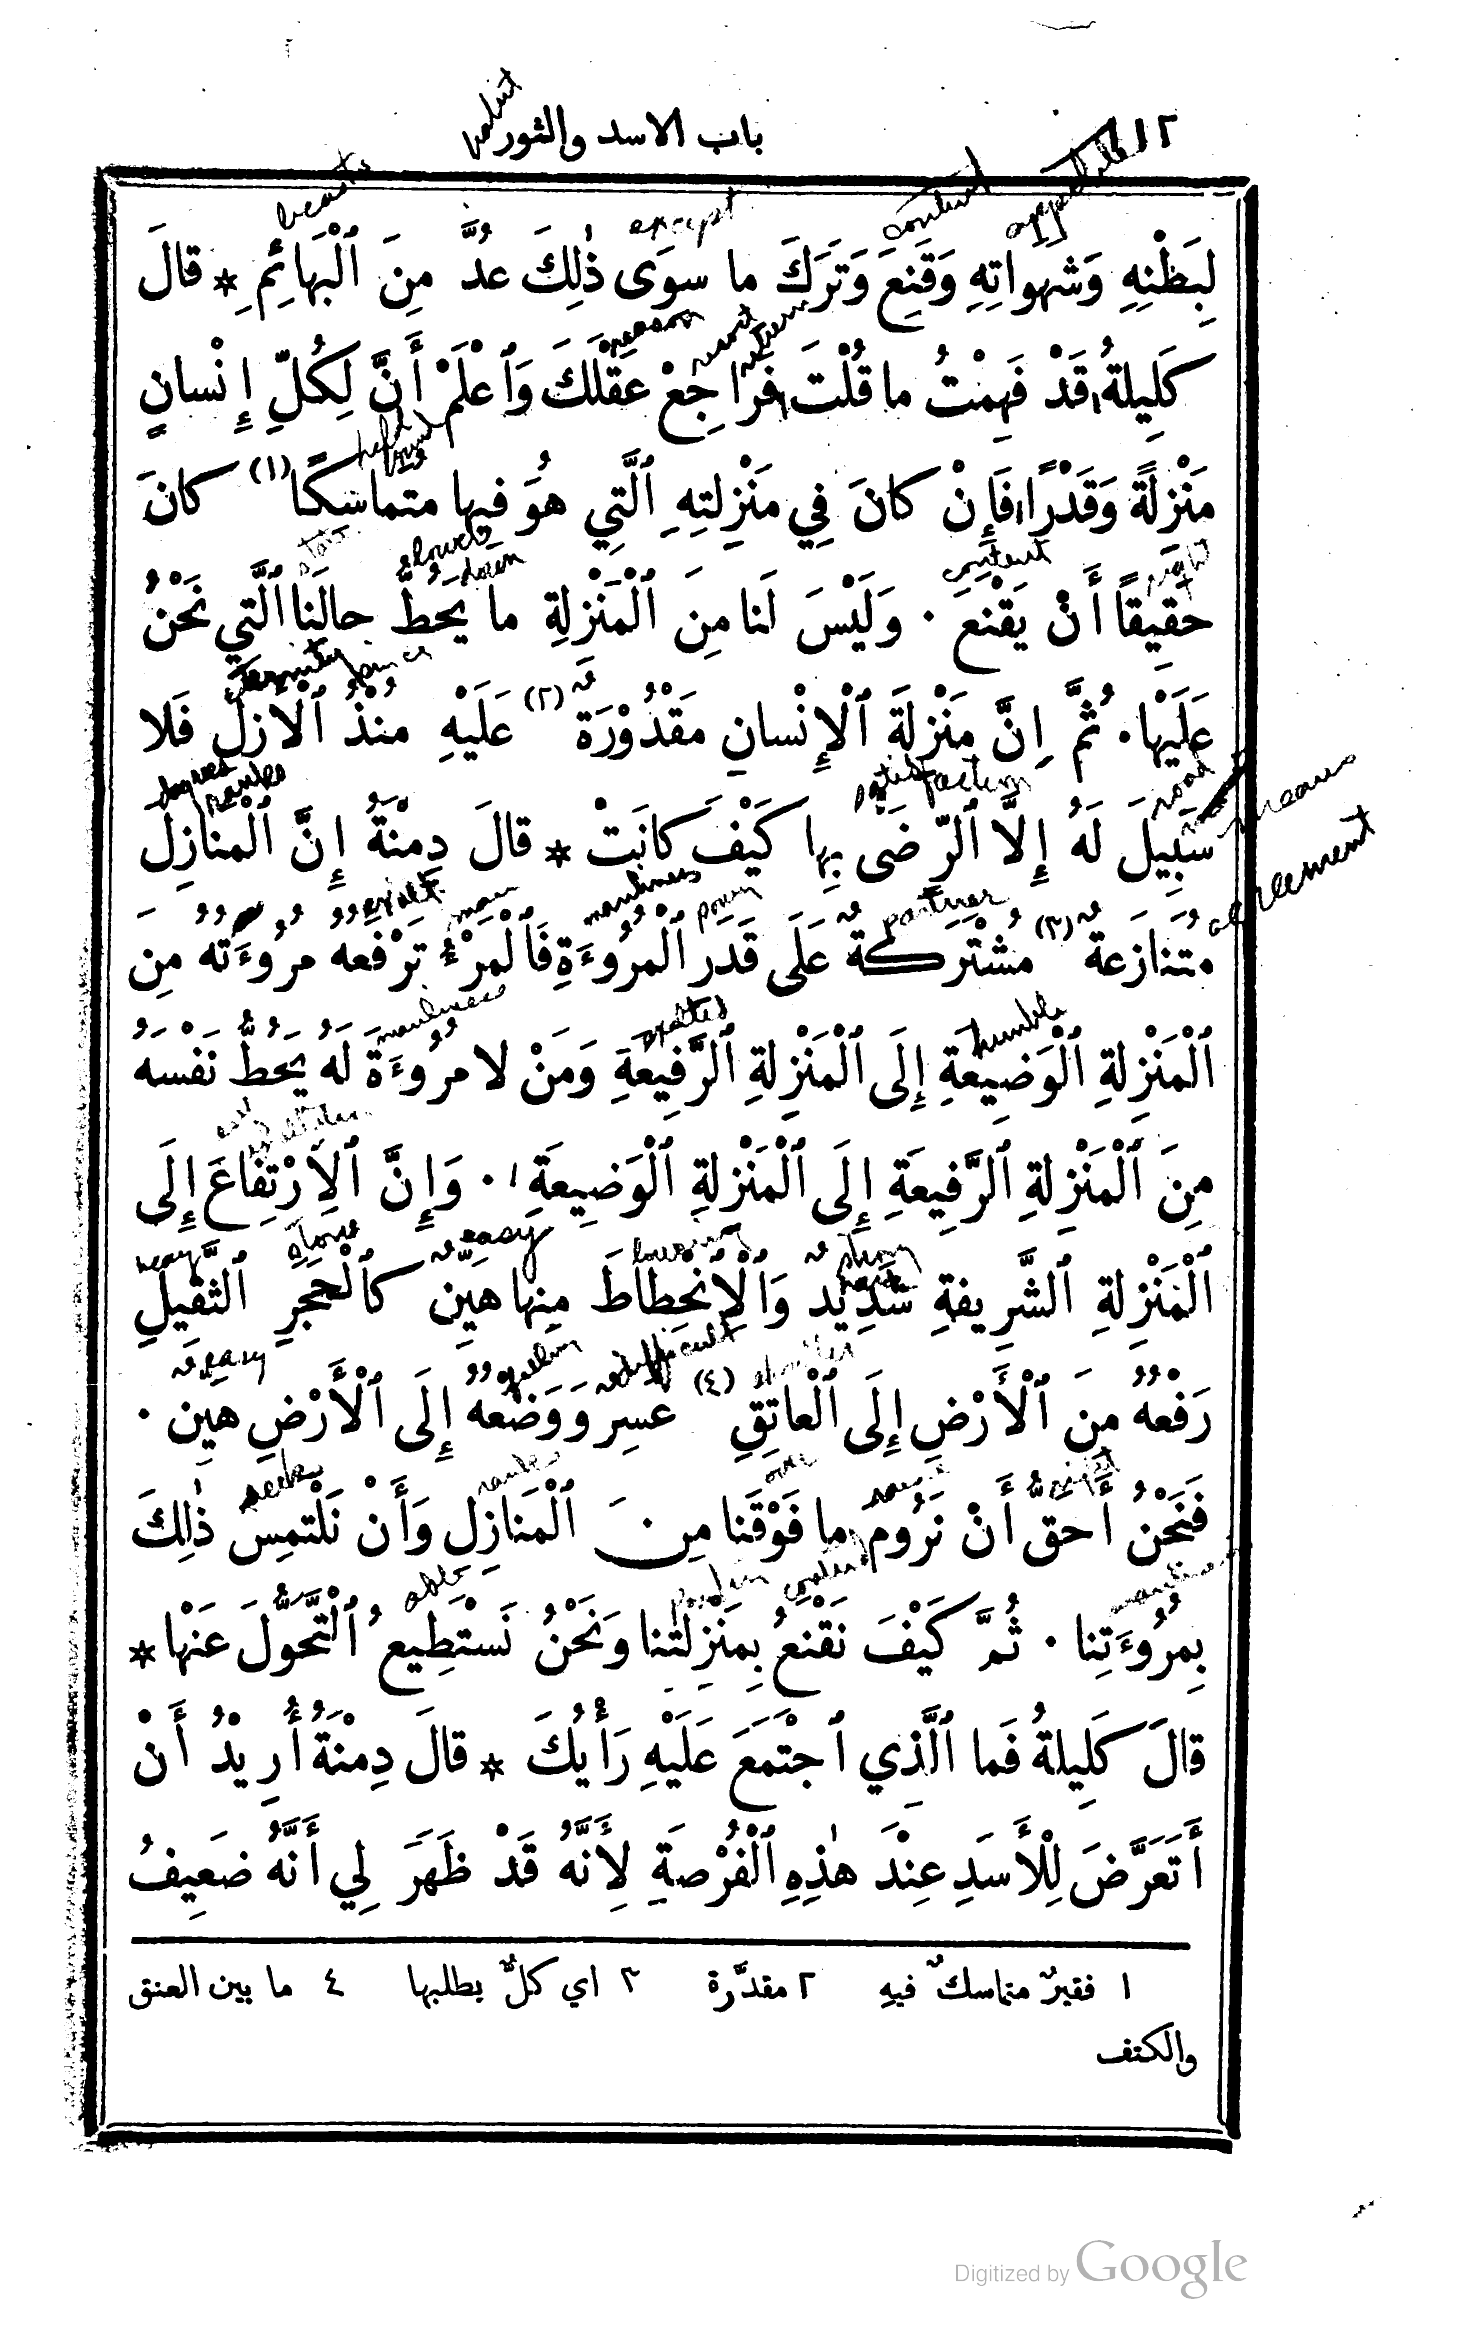 ١١٢ باب الاسد والثور
لِبَطْنِهِ وَشَهواتِهِ وَقَنِعَ وَتَرَكَ ما سوَى ذٰلِكَ عُدَّ مِنَ ٱلْبَهائِمِ * قالَ
كَلِيلةُ قَدْ فَهِمْتُ ما قُلْتَ فَراجِعْ عَقْلَكَ وَٱعْلَمْ أَنَّ لِكُلِّ إِنْسانٍ
مَنْزِلةً وَقَدْرًا فَإِنْ كانَ فِي مَنْزِلتِهِ ٱلَّتِي هوَ فيها متماسِكًا (١) كانَ
حَقيقاً أَنْ يَقْنَعَ · وَلَيْسَ لَنا مِنَ ٱلْمَنْزِلةِ ما يَحُطُّ حالَنا ٱلَّتِي نَحْنُ
عَلَيْها · ثُمَّ إِنَّ مَنْزِلَةَ ٱلْإِنْسانِ مَقْدُوْرَةٌ (٢) عَلَيْهِ منْذُ ٱلْأَزلِ فَلا
سَبِيلَ لَهُ إِلَّا ٱلرّضَى بِها كَيْفَ كانَتْ * قالَ دِمْنَةُ إِنَّ ٱلْمَنازِلَ
مُتَنازَعةٌ (٣) مُشْتَرَكةٌ عَلَى قَدَرِ ٱلْمُرُوءَةِ فَٱلْمَرْءُ تَرْفَعهُ مُرُوءَتُهُ مِنَ
ٱلْمَنْزِلةِ ٱلْوَضِيعَةِ إِلَى ٱلْمَنْزِلةِ ٱلرَّفِيعَةِ وَمَنْ لا مرُوءَةَ لَهُ يَحُطُّ نَفْسَهُ
مِنَ ٱلْمَنْزِلةِ ٱلرَّفِيعَةِ إِلَى ٱلْمَنْزِلةِ ٱلْوَضِيعَةِ · وَإِنَّ ٱلِٱرْتِفاعَ إِلَى
ٱلْمَنْزِلةِ ٱلشَّرِيفةِ شَدِيْدٌ وَٱلْٱِنْحِطاطَ مِنها هيِّنٌ كٱلْحجرِ ٱلثَّقيلِ
رَفْعُهُ مِنَ ٱلْأَرْضِ إِلَى ٱلْعاتِقِ (٤) عَسِرٌ وَوَضْعُهُ إِلَى ٱلْأَرْضِ هيِّنٌ ·
فَنَحْنُ أَحَقُّ أَنْ نَرُومَ ما فَوْقَنا مِنَ ٱلْمَنازِلِ وَأَنْ نَلْتَمِسَ ذٰلِكَ
بِمرُوءَتِنا · ثُمَّ كَيْفَ نَقْنَعُ بِمَنْزِلَتِنا وَنَحْنُ نَستْطِيعُ ٱلْتَّحَوُّلَ عَنْها *
قالَ كَلِيلةُ فَما ٱلَّذِي ٱجْتَمَعَ عَلَيْهِ رَأْيُكَ * قالَ دِمْنَةُ أُرِيْدُ أَنْ
أَتَعَرَّضَ لِلْأَسَدِ عِنْدَ هٰذِهِ ٱلْفُرْصةِ لِأَنَّهُ قَدْ ظَهَرَ لِي أَنَّهُ ضَعِيفُ
١ فقيرٌ متماسكٌ فيهِ ٢ مقدَّرة ٣ اي كلٌّ يطلبها ٤ ما بين العنق
والكتف
beasts
except
content
reason
content
right
satisfaction
road
means
agreement
exalt
man
manliness
power
partner
manliness
exalted
humble
heavy
stone
easy
easy
difficult
seek
ranks
able
Digitized by Google